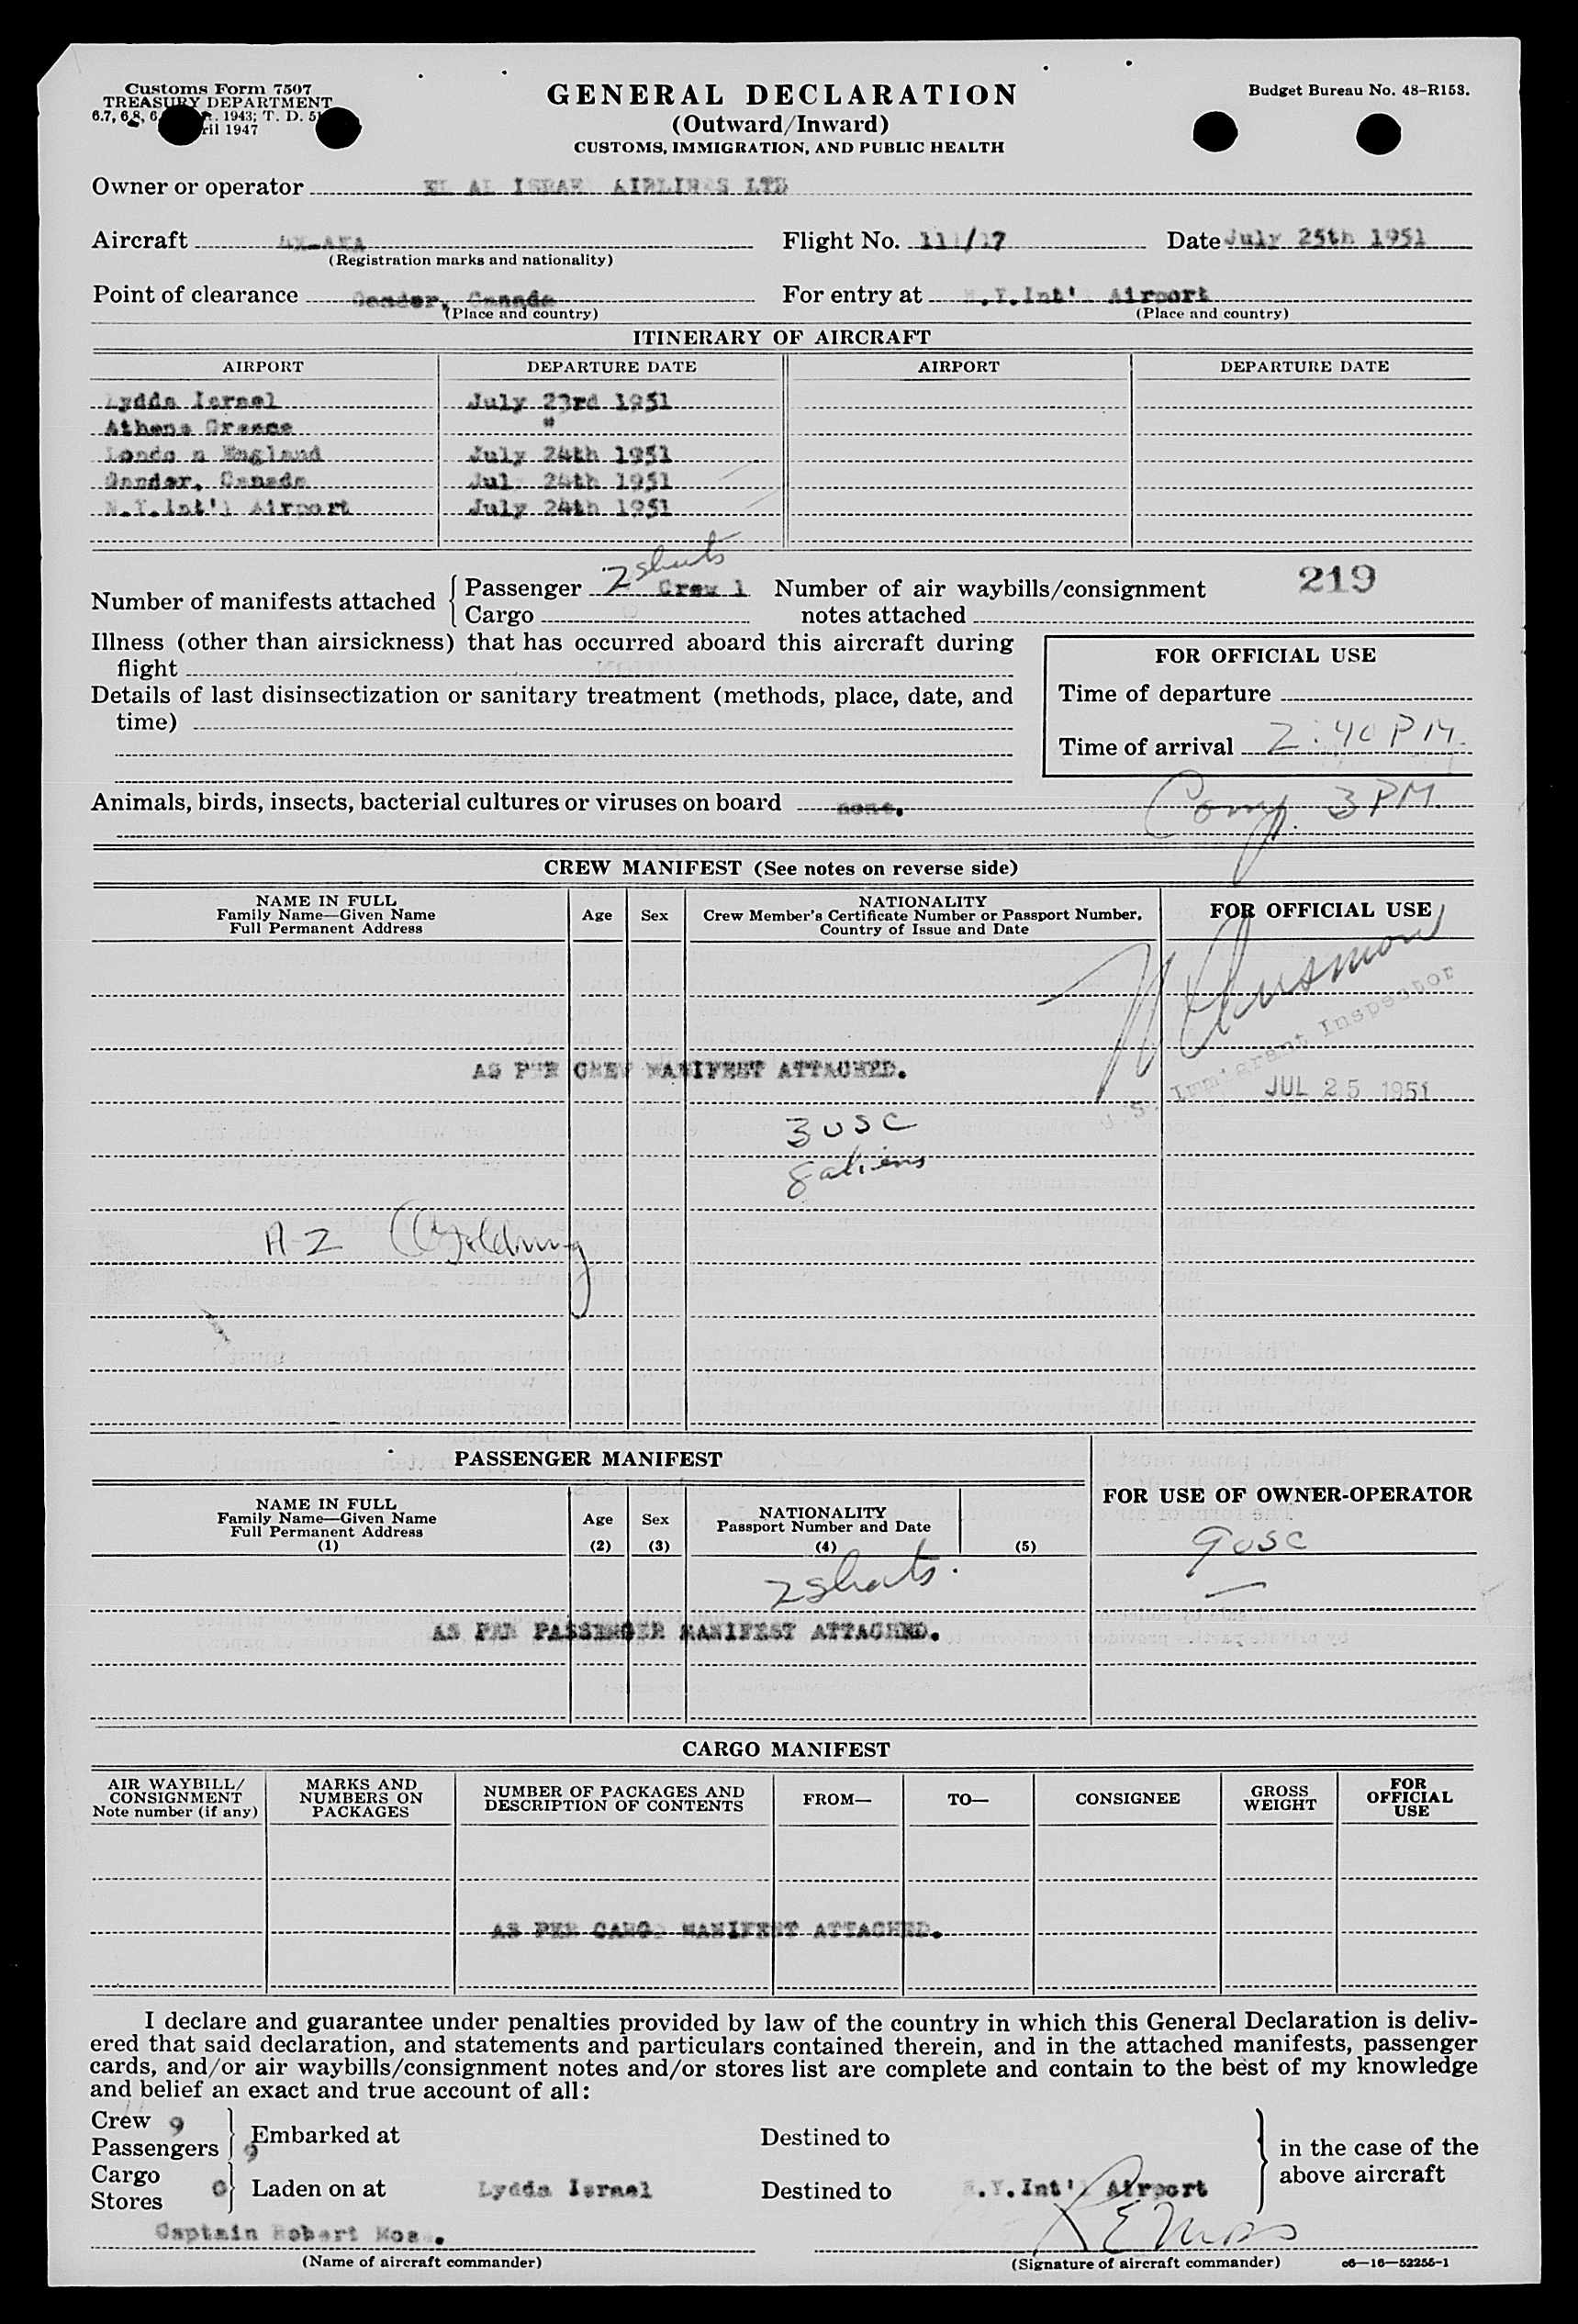 Customs Form 7507
TREASURY DEPARTMENT
6.7, 6.8, 1943; T. D.
1947
GENERAL DECLARATION
(Outward/Inward)
CUSTOMS, IMMIGRATION, AND PUBLIC HEALTH
Budget Bureau No. 48-R153.
Owner or operator EL AL ISRAEL AIRLINES LTD
Aircraft
(Registration marks and nationality)
Flight No. Date July 25th 1951
Point of clearance Gander, Canada
(Place and country)
For entry at N.Y.Int'l Airport
(Place and country)
ITINERARY OF AIRCRAFT
AIRPORT DEPARTURE DATE AIRPORT DEPARTURE DATE
Lydda Israel July 23rd 1951
Athens Greece "
Londo n England July 24th 1951
Gander, Canada Jul 24th 1951
N.Y.Int'l Airport July 24th 1951
Number of manifests attached
Passenger 2 sheets Crew 1
Cargo
Number of air waybills/consignment
notes attached
219
Illness (other than airsickness) that has occurred aboard this aircraft during
flight
Details of last disinsectization or sanitary treatment (methods, place, date, and
time)
FOR OFFICIAL USE
Time of departure
Time of arrival 2:40 PM
Animals, birds, insects, bacterial cultures or viruses on board none.
Comp. 3 PM
CREW MANIFEST (See notes on reverse side)
NAME IN FULL
Family Name—Given Name
Full Permanent Address
Age
Sex
NATIONALITY
Crew Member's Certificate Number or Passport Number,
Country of Issue and Date
FOR OFFICIAL USE
U.S. Immigrant Inspector
AS PER CREW MANIFEST ATTACHED.
JUL 25 1951
3 USC
8 aliens
A-2 Golding
PASSENGER MANIFEST
NAME IN FULL
Family Name—Given Name
Full Permanent Address
(1)
Age
(2)
Sex
(3)
NATIONALITY
Passport Number and Date
(4)
(5)
FOR USE OF OWNER-OPERATOR
9 USC
2 sheets.
AS PER PASSENGER MANIFEST ATTACHED.
CARGO MANIFEST
AIR WAYBILL/
CONSIGNMENT
Note number (if any)
MARKS AND
NUMBERS ON
PACKAGES
NUMBER OF PACKAGES AND
DESCRIPTION OF CONTENTS
FROM—
TO—
CONSIGNEE
GROSS
WEIGHT
FOR
OFFICIAL
USE
AS PER CARGO MANIFEST ATTACHED.
I declare and guarantee under penalties provided by law of the country in which this General Declaration is deliv-
ered that said declaration, and statements and particulars contained therein, and in the attached manifests, passenger
cards, and/or air waybills/consignment notes and/or stores list are complete and contain to the best of my knowledge
and belief an exact and true account of all:
Crew 9
Passengers 9
Embarked at
Destined to
Cargo 0
Stores
Laden on at Lydda Israel
Destined to N.Y.Int'l Airport
in the case of the
above aircraft
Captain Robert Moss.
(Name of aircraft commander)
R E Moss
(Signature of aircraft commander)
c6—16—52255-1